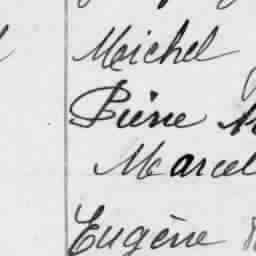 Michel
Pierre
Marcel
Eugène